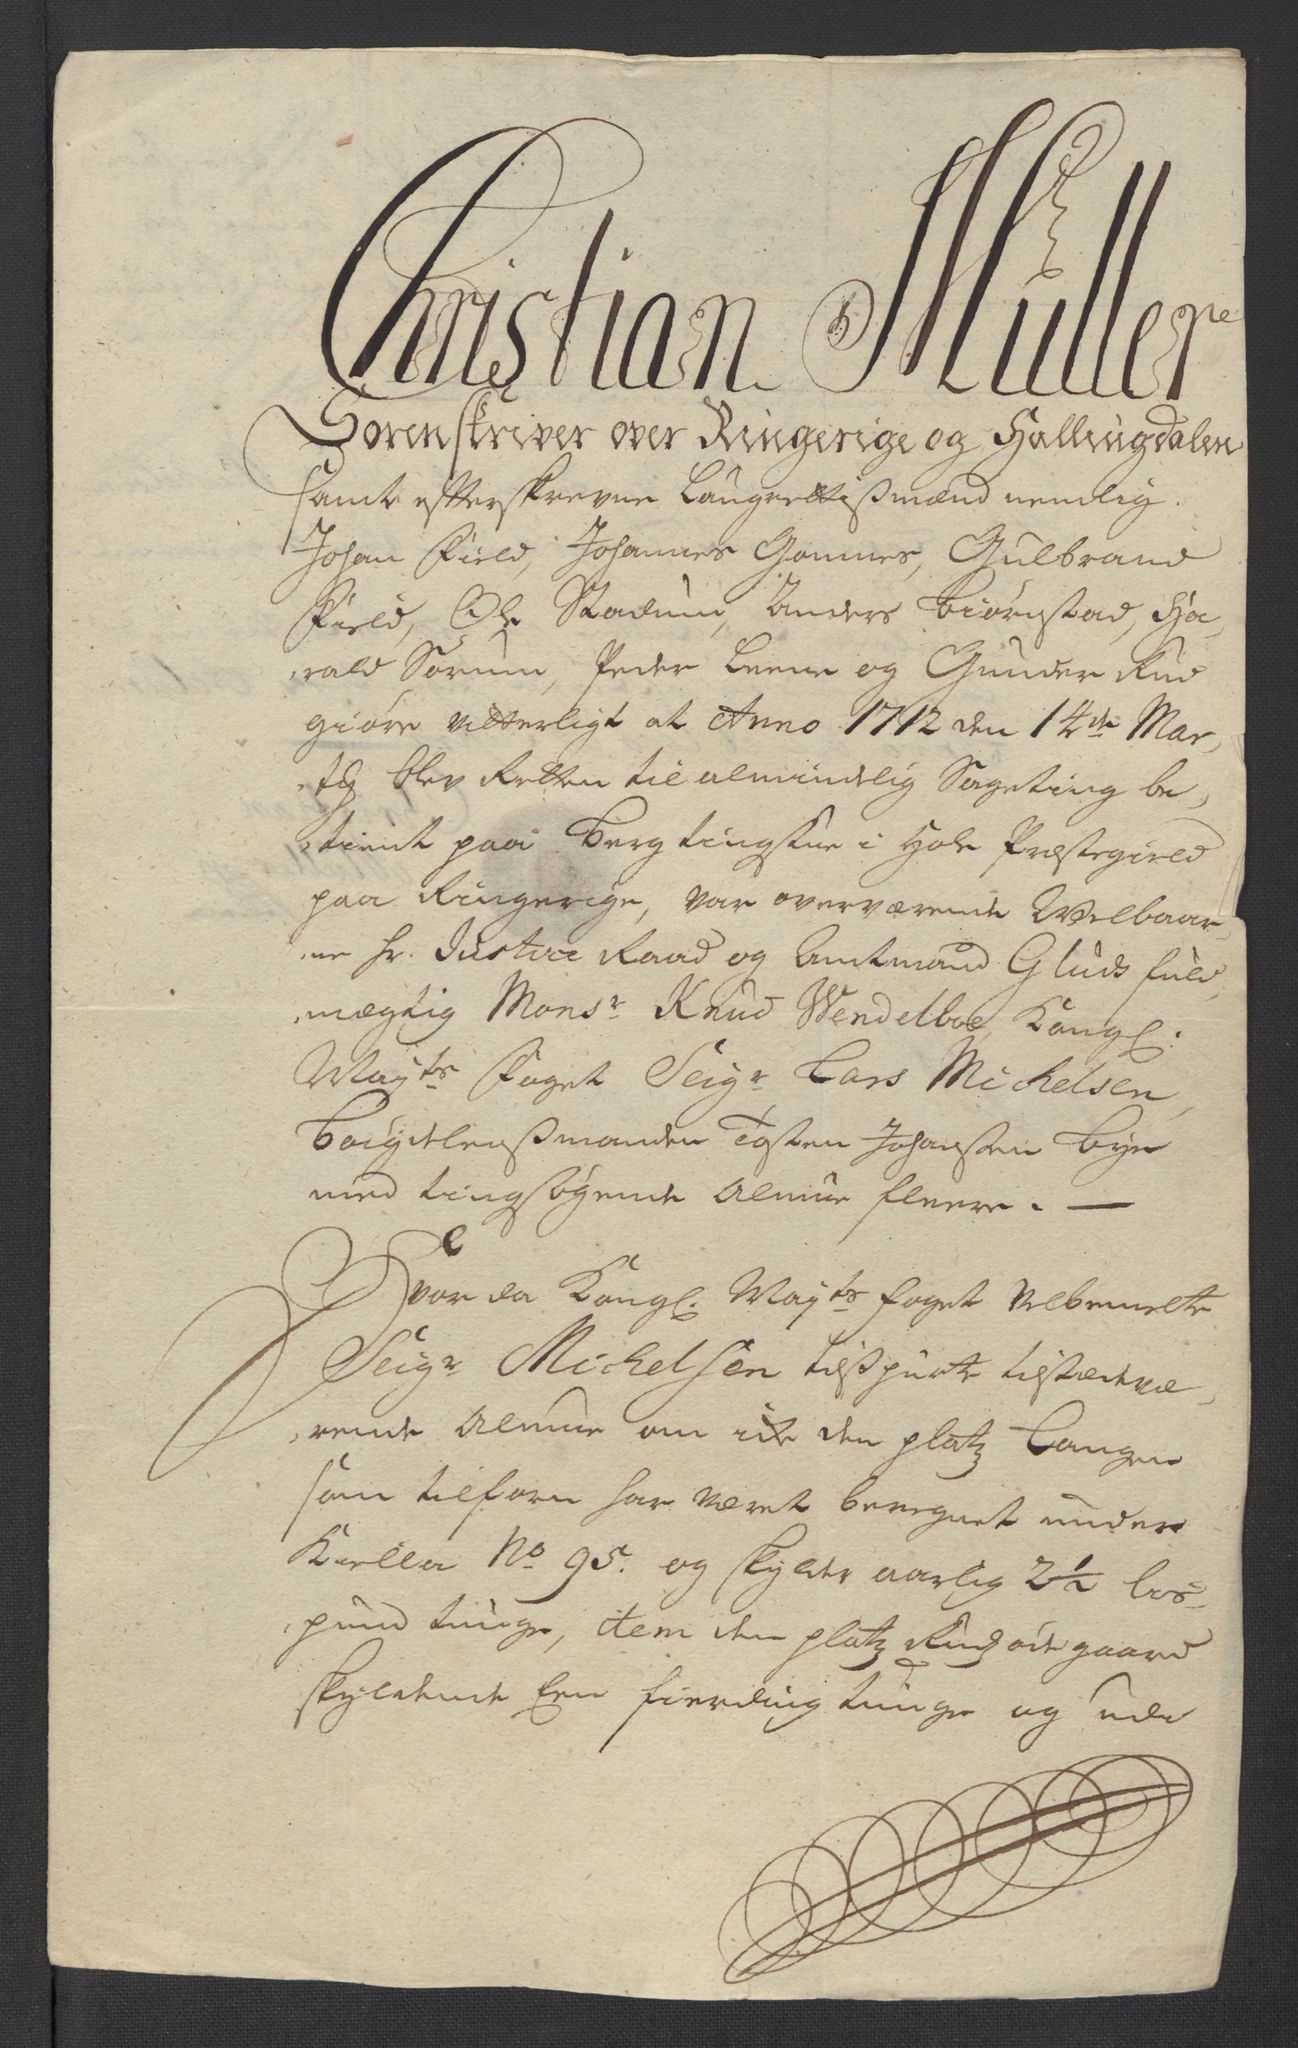 Christian Müller
Sorenskriver over Ringerige og Hallingdalen
samt efterskrevne Laugrettißmænd nemlig
Johan Field, Johannes Gommes, Gulbrand
Field, Ole Stadum, Anders Biørnstad, Ha,
rald Sørum, Peder Leene og Gunder Rud
giøre vitterligt at Anno 1712 den 14de Mar,
tij blev Retten til almindelig Sageting be,
tient paa Berg tingstue i Hole Præstegield
paa Ringerige, var overværende Welbaar,
ne hr. Justice Raad og Amtmand Gluds fuld,
mægtig Monsr. Knud Wendelboe, Kongl.
Mayts Foget Seigr. Lars Michelsen,
Boigdelenßmanden Tosten Johansen Bye
med tingsøgende Almue fleere. —
Hvor da Kongl. Mayts foget velbemelte
Seigr. Michelsen tilspurte tilstædevæ,
rende Almue om icke den platz Langen
som tilforn har været beregnet under
Kiella No. 95. og skylder aarlig 2½ lis-
pund tunge, item den platz Rudsødegaard
skyldende Een fierding tunge og ude